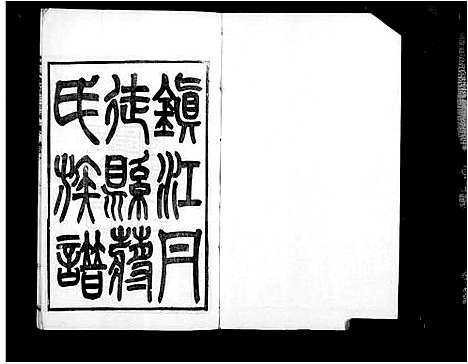 鎮江丹
徒縣蔣
氏族譜